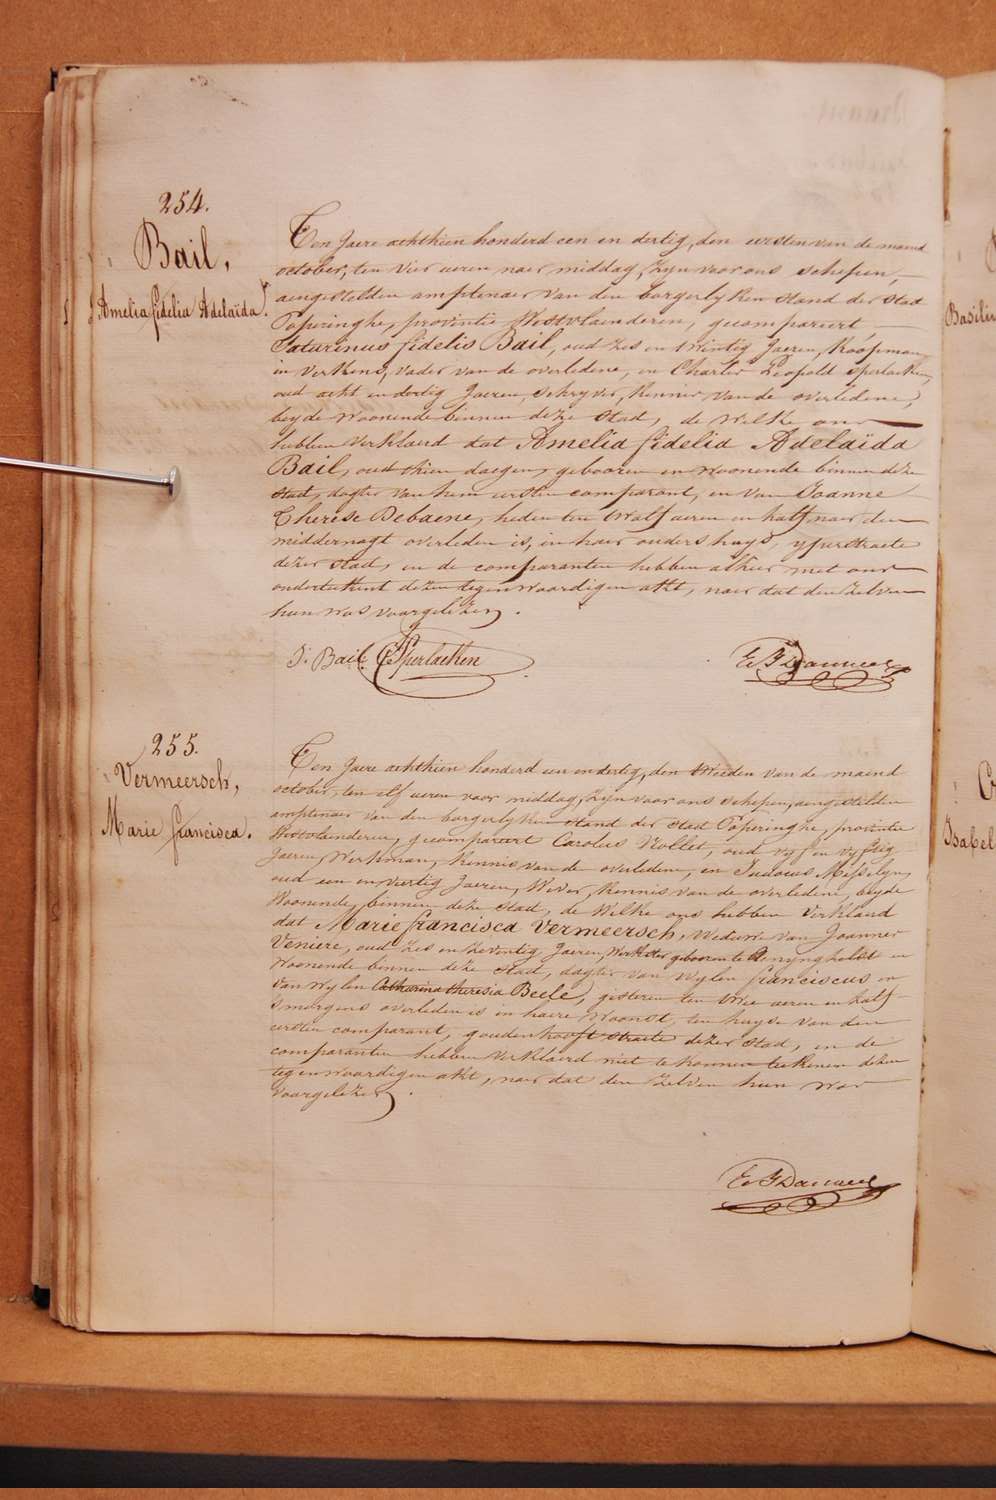 254.
Bail,
Amelia fidelia Adelaïda.
Ten Jaere achthien honderd een en dertig, den eersten van de maend
october, ten vier ueren naer middag, zyn voor ons schepen,
aengestelden amptenaer van den borgerlyken stand der stad
Poperinghe, provintie Westvlaenderen, gecompareert
Saturinus fidelis Bail, oud zes en twintig Jaeren, Koopman
in verkens, vader van de overledene, en Charles Leopold Sperlaeken,
oud acht en dertig Jaeren, schryver, kenner van de overledene,
beyde woonende binnen deze stad, de welke ons
hebben verklaerd dat Amelia fidelia Adelaïda
Bail, oud thien daegen, gebooren en woonende binnen deze
stad, dogter van hem eersten comparant, en van Joanne
Therese Debaene, heden ten twalf ueren en half naer den
middernagt overleden is, in haer ouders huys, yperstraete
dezer stad, en de comparanten hebben alhier met ons
onderteekent dezen tegenwoordigen akt, naer dat den zelven
hun was voorgelezen.
S. Bail. CL Sperlaeken
255.
Vermeersch,
Marie francisca.
Ten Jaere achthien honderd een en dertig, den tweeden van de maend
october, ten elf ueren voor middag, zyn voor ons schepen, aengestelden
amptenaer van den borgerlyken stand der stad Poperinghe, provintie
Westvlaenderen, gecompareert Carolus Nollet, oud vyf en vyftig
Jaeren, Werkman, kennis van de overledene, en Judocus Misselyn,
oud een en veertig Jaeren, Wever, kennis van de overledene, beyde
woonende binnen deze stad, de welke ons hebben verklaerd
dat Marie francisca Vermeersch, weduwe van Joannes
Veniere, oud zes en zeventig Jaeren, Werkster gebooren te Renynghelst en
woonende binnen deze stad, dogter van wylen franciscus en
van wylen Catharina theresia Beele, gisteren ten twee ueren en half
smorgens overleden is in haere woonst, ten huyse van den
eersten comparant, goudenhooft straete dezer stad, en de
comparanten hebben verklaerd niet te konnen teekenen dezen
tegenwoordigen akt, naer dat den zelven hun was
voorgelezen.